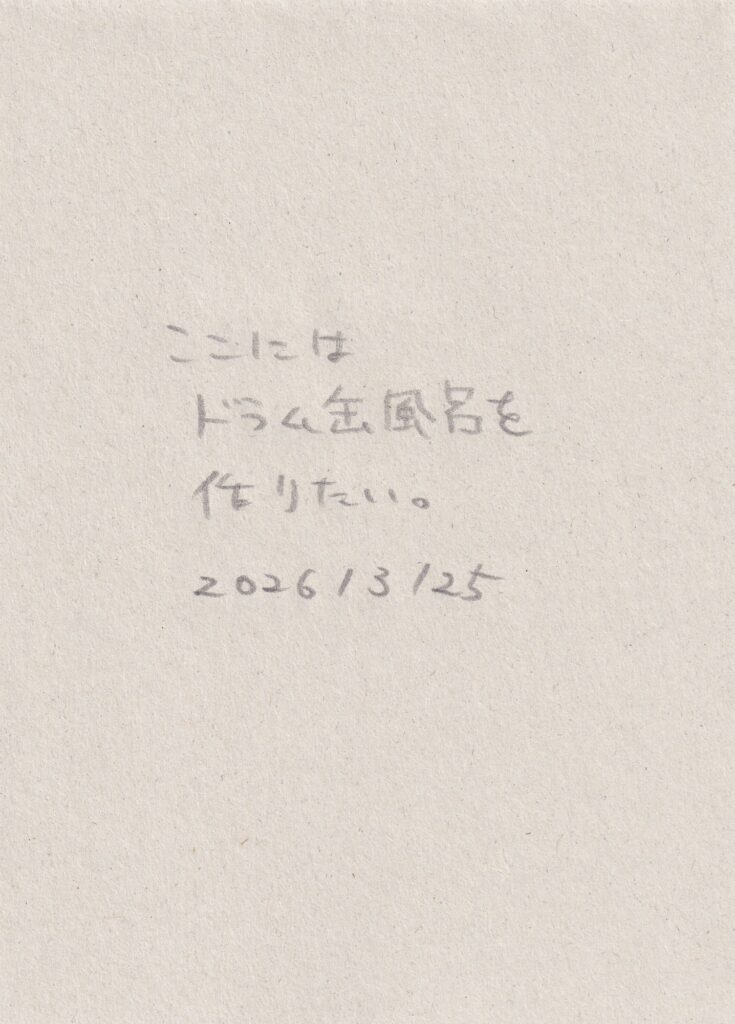 ここには
ドラム缶風呂を
作りたい。
2026/3/25